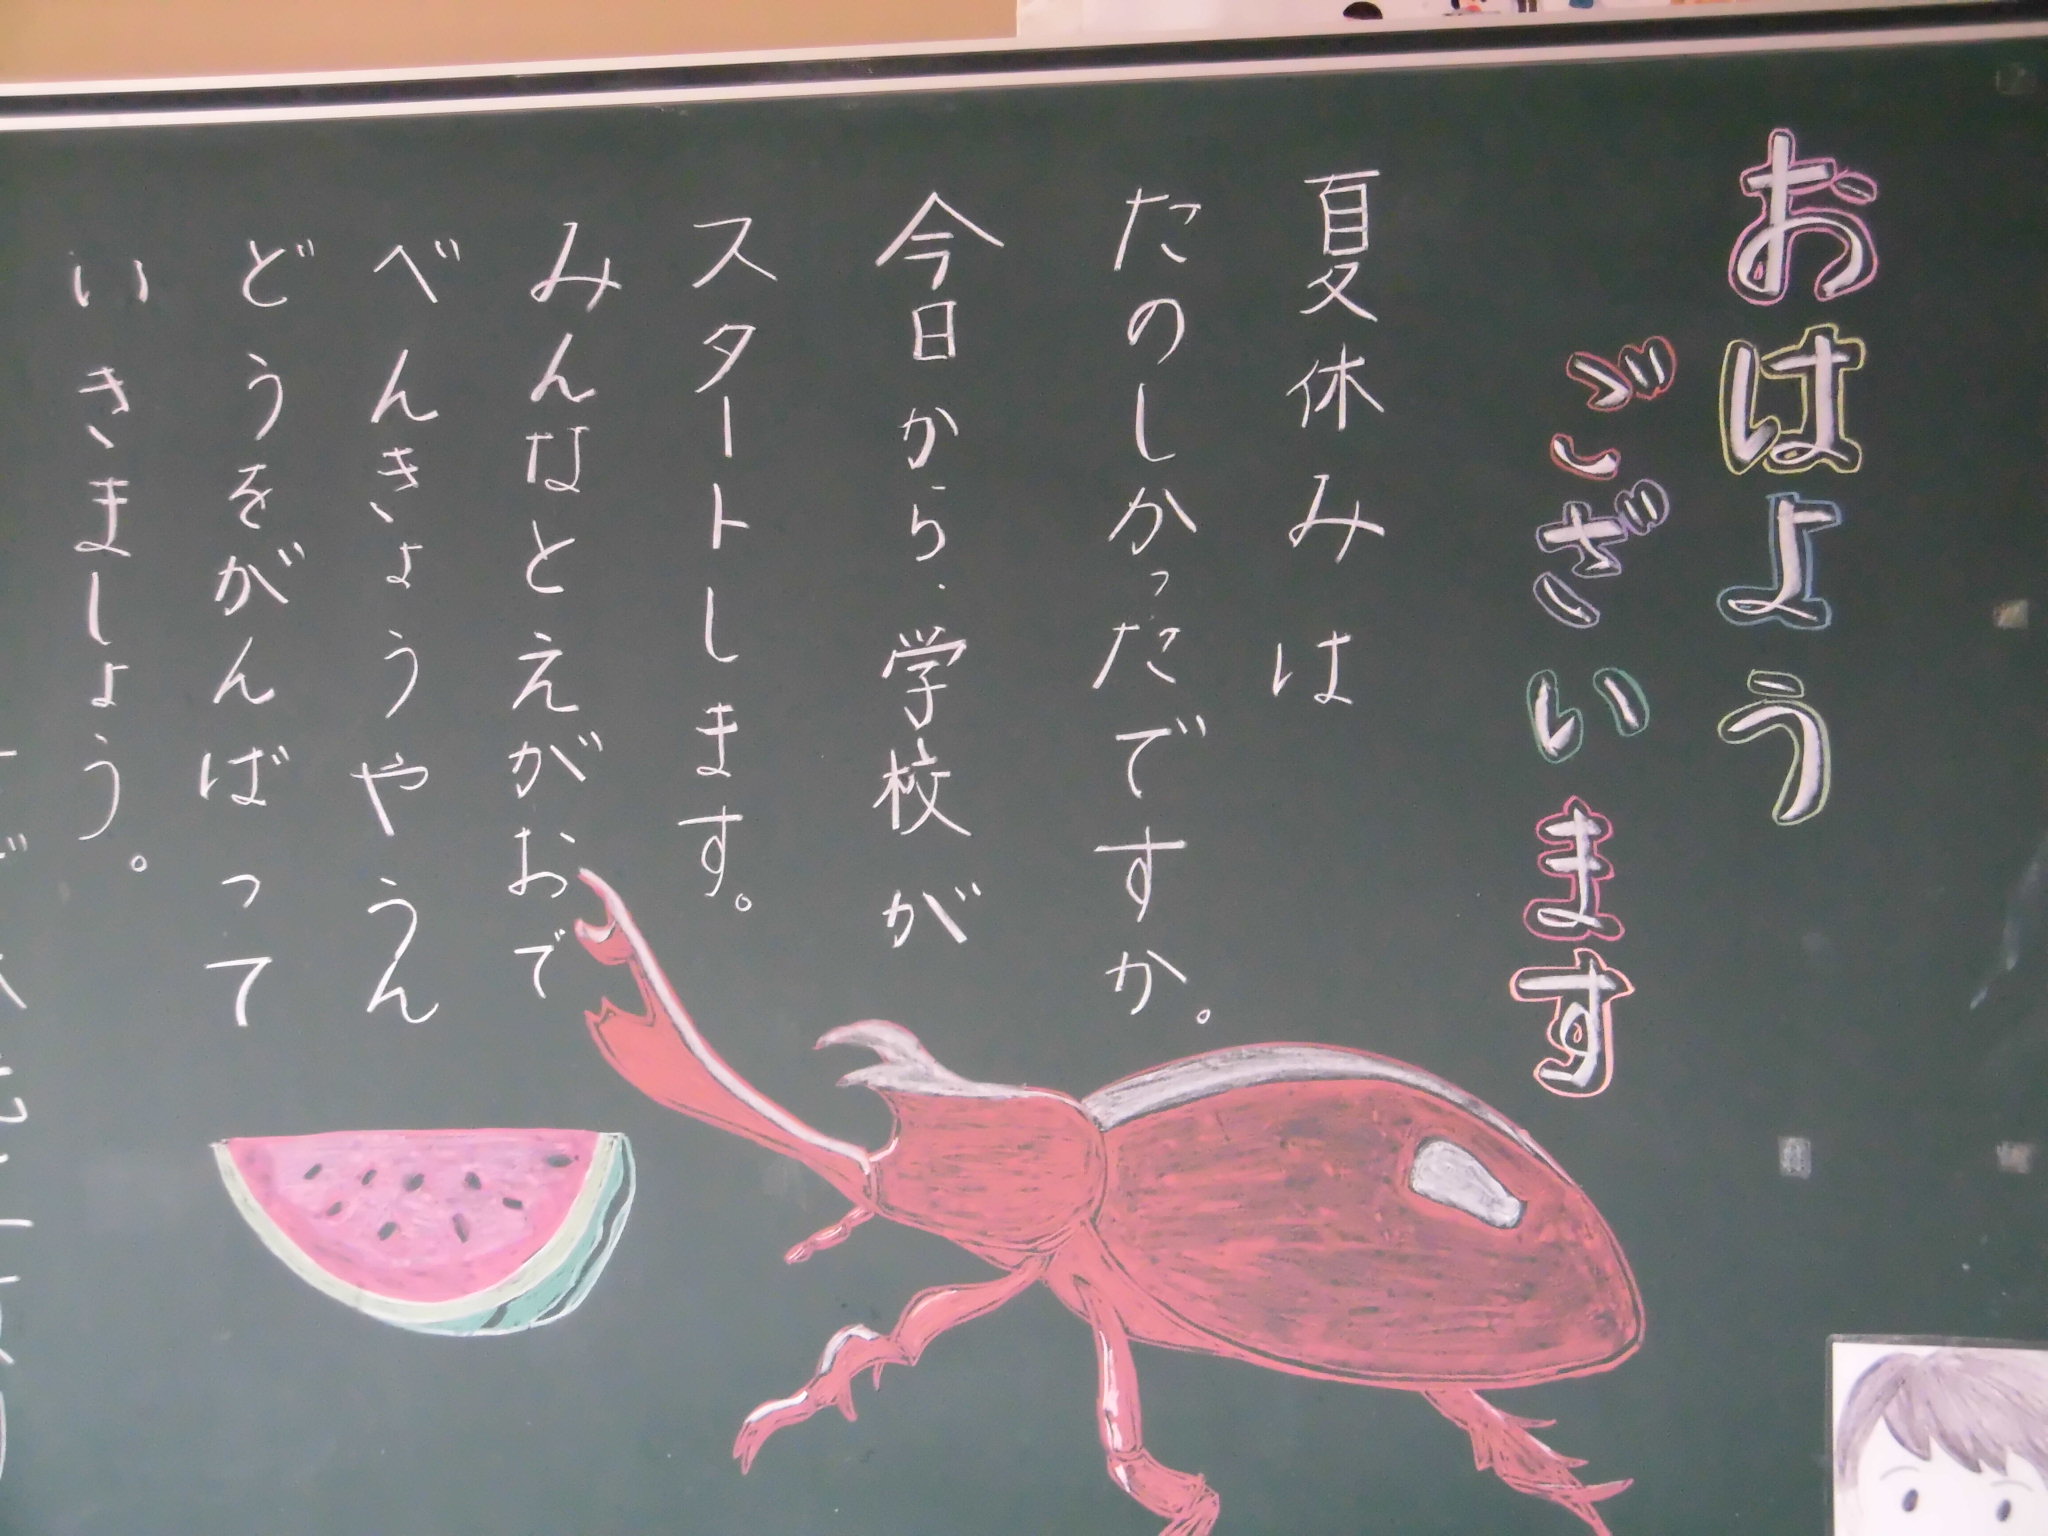 おはよう
ございます
夏休みは
たのしかったですか。
今日から、学校が
スタートします。
みんなとえがおで
べんきょうやうん
どうをがんばって
いきましょう。